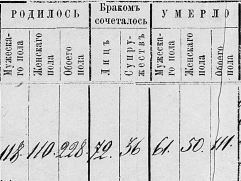 РОДИЛОСЬ
Бракомъ
сочеталось
УМЕРЛО
Мужеска-
го пола
Женскаго
пола
Обоего
пола
Лицъ
Супру-
жествъ
Мужеска-
го пола
Женскаго
пола
Обоего
пола
118. 110. 228. 72. 36 61. 50. 111.